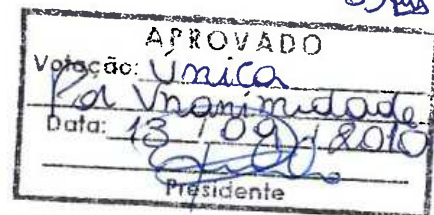 APROVADO
Votação: Única
Por Unanimidade
Data: 13 / 09 / 2010
Presidente